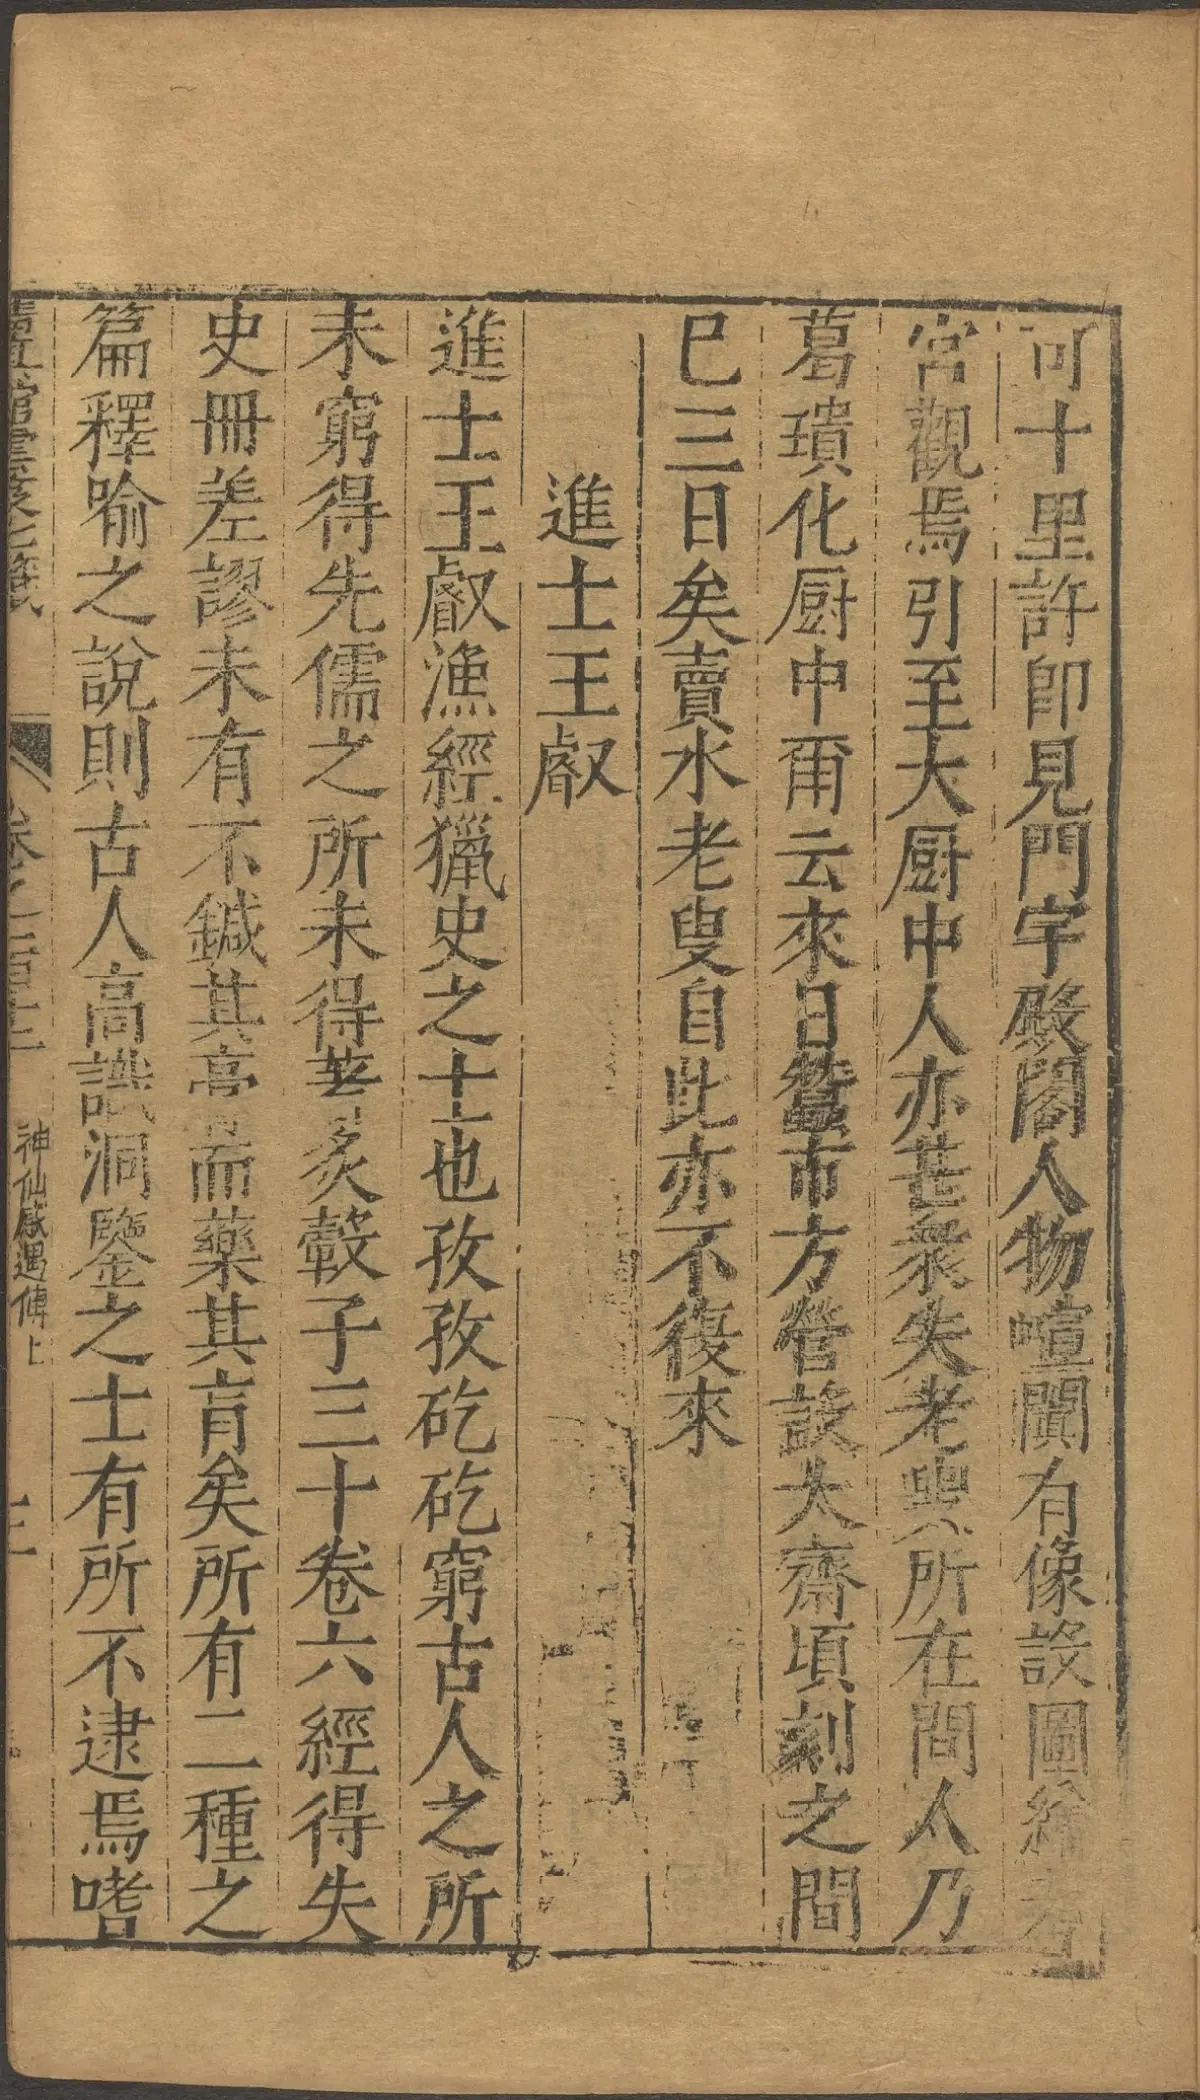 可十里許即見門宇殿閣人物喧闐有像設圖繪若
宮觀焉引至大厨中人亦甚衆失老叟所在問人乃
葛璝化厨中爾云來日蠶市方營設大齋頃刻之間
已三日矣賣水老叟自此亦不復來
進士王叡
進士王叡漁經獵史之士也孜孜矻矻窮古人之所
未窮得先儒之所未得著炙轂子三十卷六經得失
史冊差謬未有不鍼其膏而藥其肓矣所有二種之
篇釋喻之說則古人高識洞鑒之士有所不逮焉嗜
卷之一百十二 神仙感遇傳上 三